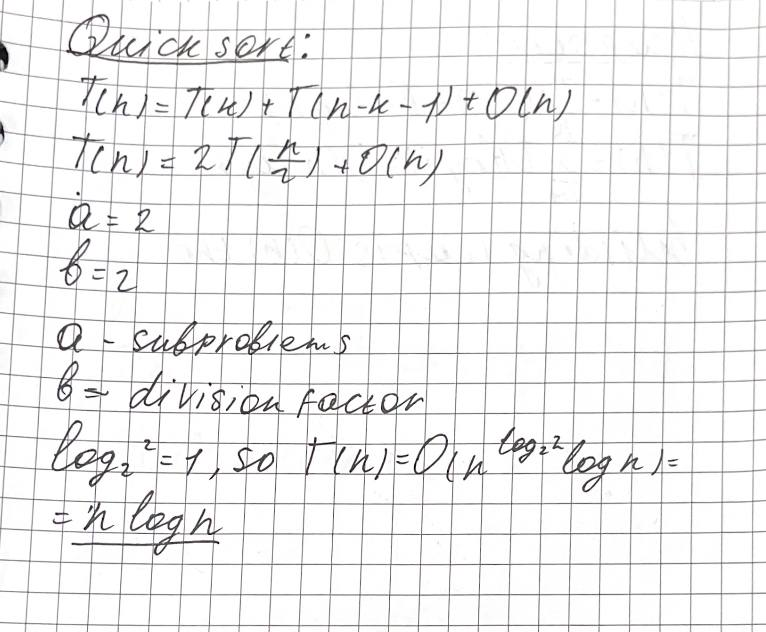 Quick sort:
T(n) = T(k) + T(n-k-1) + O(n)
T(n) = 2T(n/2) + O(n)
a = 2
b = 2
a - subproblems
b - division factor
log₂2 = 1, so T(n) = O(n^log₂2 log n) =
= n log n